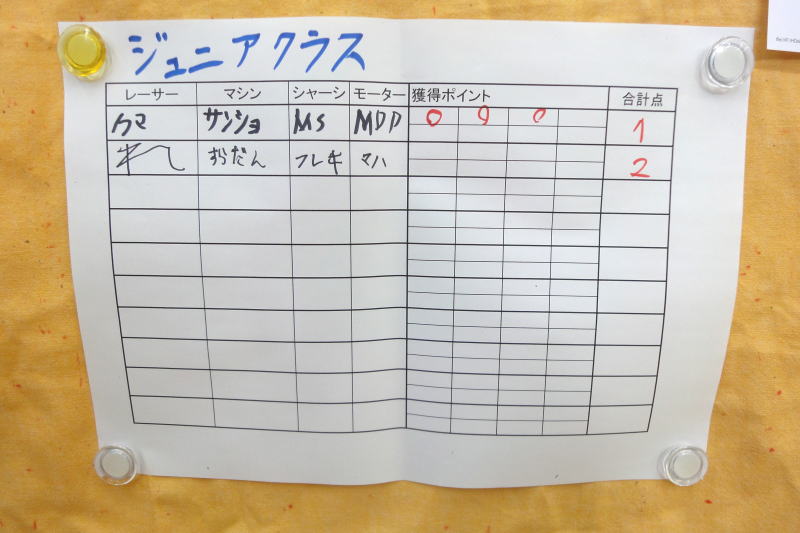 ジュニアクラス
レーサー マシン シャーシ モーター 獲得ポイント 合計点
クマ サンショ MS MDD 0 0 0 1
おらだん フレキ マハ 2